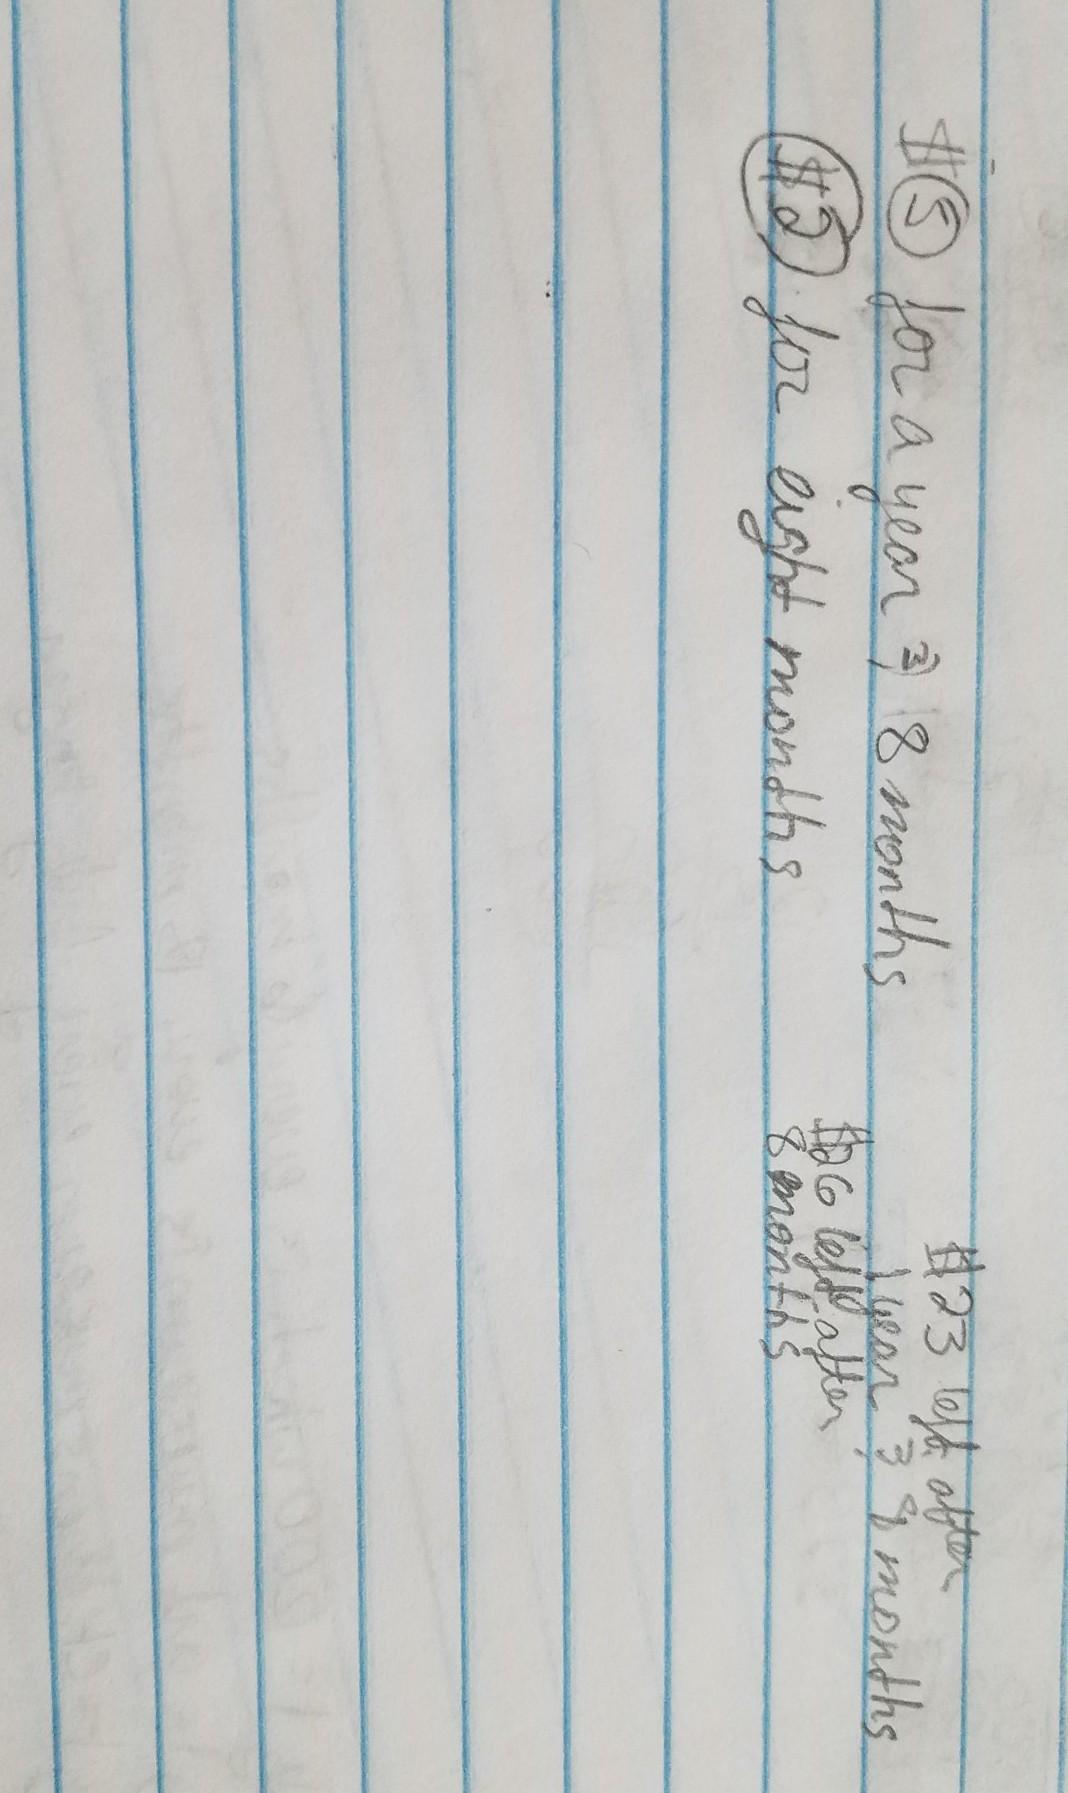 $5 for a year & 8 months
$2 for eight months
$23 left after
1 year & 8 months
$26 left after
8 months